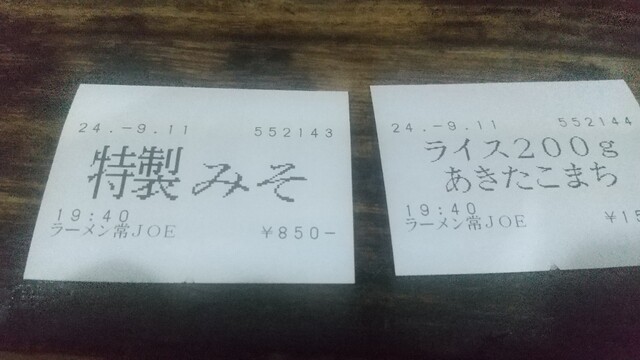 24.-9.11 552143
特製みそ
19:40
ラーメン常JOE ¥850-
24.-9.11 552144
ライス200g
あきたこまち
19:40
ラーメン常JOE ¥15